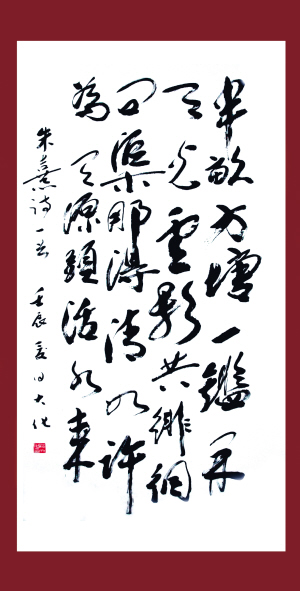 半畝方塘一鑑開
天光雲影共徘徊
問渠那得清如許
為有源頭活水來
朱熹詩一首 壬辰夏日大化